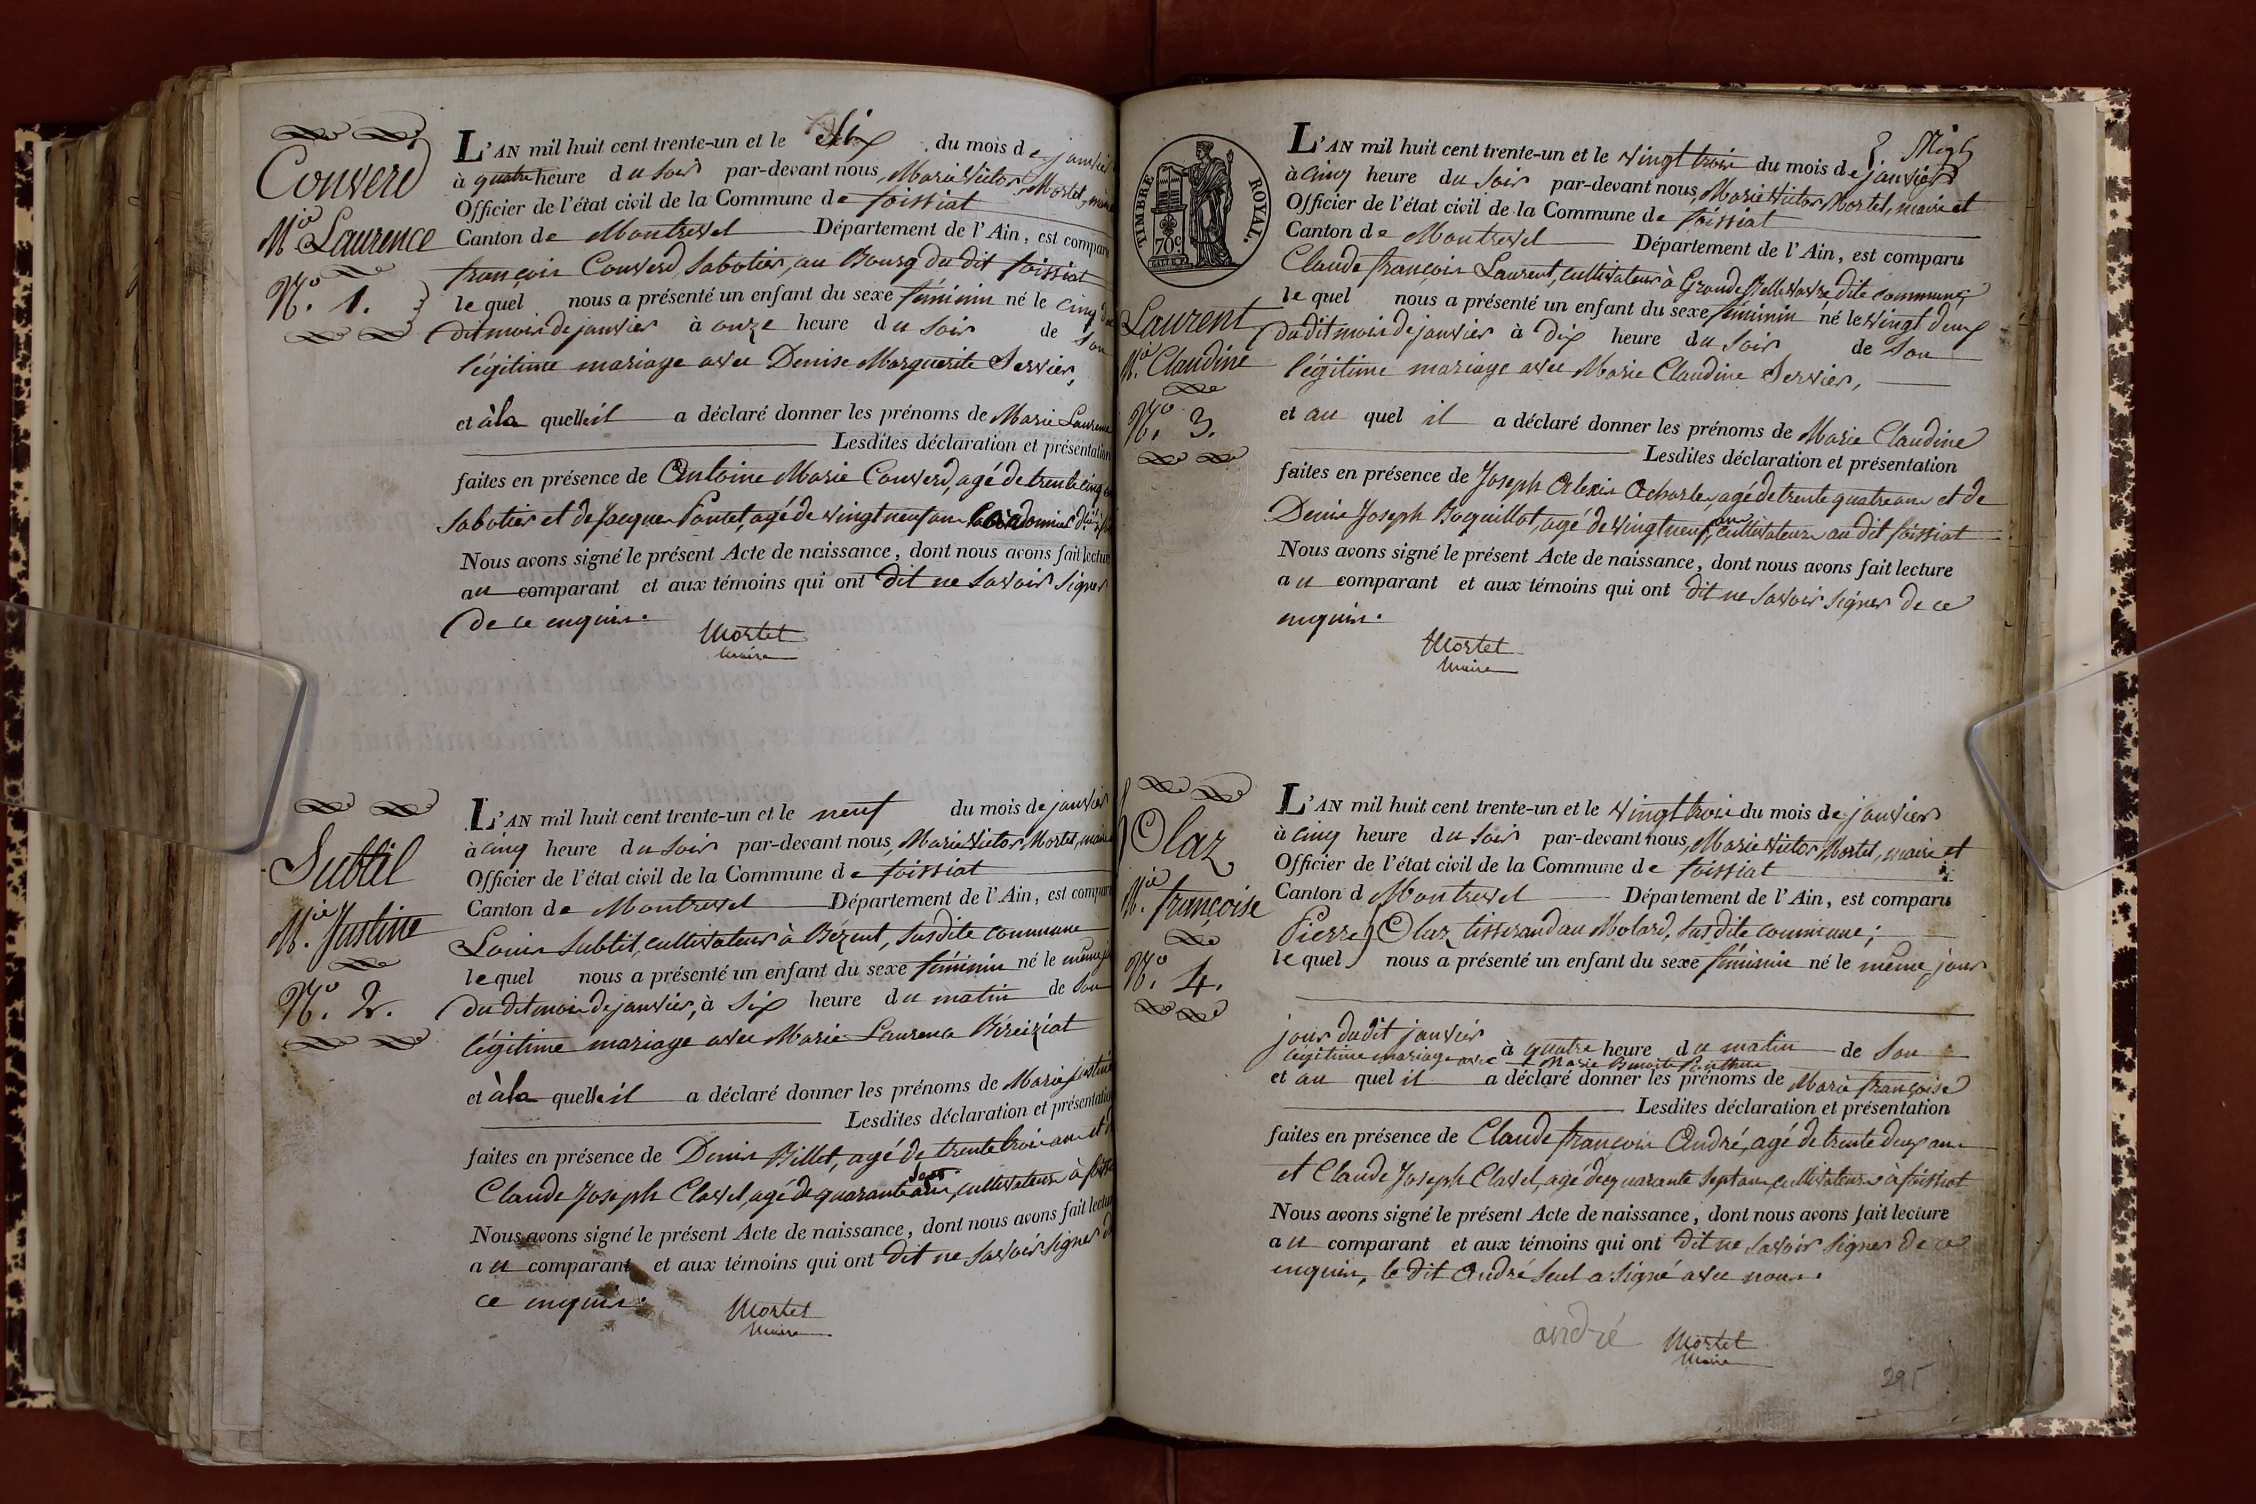 Converd
Mie Laurence
No. 1.
L'AN mil huit cent trente-un et le six du mois de janvier
à quatre heure du soir par-devant nous, Marie Victor Mortet, maire
Officier de l'état civil de la Commune de foissiat
Canton de Montrevel Département de l'Ain, est comparu
françois Converd, Sabotier, au Bourg du dit foissiat
lequel nous a présenté un enfant du sexe féminin né le cinq du
dit mois de janvier à onze heure du soir de son
légitime mariage avec Denise Marguerite Servier,
et à la quelle il a déclaré donner les prénoms de Marie Laurence
Lesdites déclaration et présentation
faites en présence de Antoine Marie Converd, agé de trente cinq
Sabotier et de Jacques Pontet, agé de vingt neuf ans
Nous avons signé le présent Acte de naissance, dont nous avons fait lecture
au comparant et aux témoins qui ont dit ne savoir signer
de ce enquis.
Mortet
Maire
Subtil
Mie Justine
No. 2.
L'AN mil huit cent trente-un et le neuf du mois de janvier
à cinq heure du soir par-devant nous, Marie Victor Mortet, maire
Officier de l'état civil de la Commune de foissiat
Canton de Montrevel Département de l'Ain, est comparu
Louis Subtil, cultivateur à Bézent, susdite commune
lequel nous a présenté un enfant du sexe féminin né le même
du dit mois de janvier, à six heure du matin de son
légitime mariage avec Marie Laurence Béreiziat
et à la quelle il a déclaré donner les prénoms de Marie justine
Lesdites déclaration et présentation
faites en présence de Denis Billet, agé de trente trois ans et
Claude Joseph Clavel, agé de quarante sept ans, cultivateurs à
Nous avons signé le présent Acte de naissance, dont nous avons fait lecture
au comparant et aux témoins qui ont dit ne savoir signer
ce enquis.
Mortet
Maire
TIMBRE ROYAL.
70c.
Laurent
Mie Claudine
No. 3.
L'AN mil huit cent trente-un et le vingt trois du mois de janvier
à cinq heure du soir par-devant nous, Marie Victor Mortet, maire et
Officier de l'état civil de la Commune de foissiat
Canton de Montrevel Département de l'Ain, est comparu
Claude françois Laurent, cultivateur à Grande Bellevavre dite commune
lequel nous a présenté un enfant du sexe féminin né le vingt deux
du dit mois de janvier à dix heure du soir de son
légitime mariage avec Marie Claudine Servier,
et au quel il a déclaré donner les prénoms de Marie Claudine
Lesdites déclaration et présentation
faites en présence de Joseph Alexis Acharles, agé de trente quatre ans et de
Denis Joseph Boquillot, agé de vingt neuf ans, cultivateurs au dit foissiat
Nous avons signé le présent Acte de naissance, dont nous avons fait lecture
au comparant et aux témoins qui ont dit ne savoir signer de ce
enquis.
Mortet
Maire
Olaz
Mie françoise
No. 4.
L'AN mil huit cent trente-un et le vingt trois du mois de janvier
à cinq heure du soir par-devant nous, Marie Victor Mortet, maire et
Officier de l'état civil de la Commune de foissiat
Canton d Montrevel Département de l'Ain, est comparu
Pierre Olaz, tisserand au Molard, susdite commune;
lequel nous a présenté un enfant du sexe féminin né le même jour
jour dudit janvier à quatre heure du matin de son
légitime mariage avec Marie Benoite
et au quel il a déclaré donner les prénoms de Marie françoise
Lesdites déclaration et présentation
faites en présence de Claude françois André, agé de trente deux ans
et Claude Joseph Clavel, agé de quarante sept ans, cultivateurs à foissiat
Nous avons signé le présent Acte de naissance, dont nous avons fait lecture
au comparant et aux témoins qui ont dit ne savoir signer de ce
enquis, le dit André seul a signé avec nous.
andré
Mortet
Maire
295